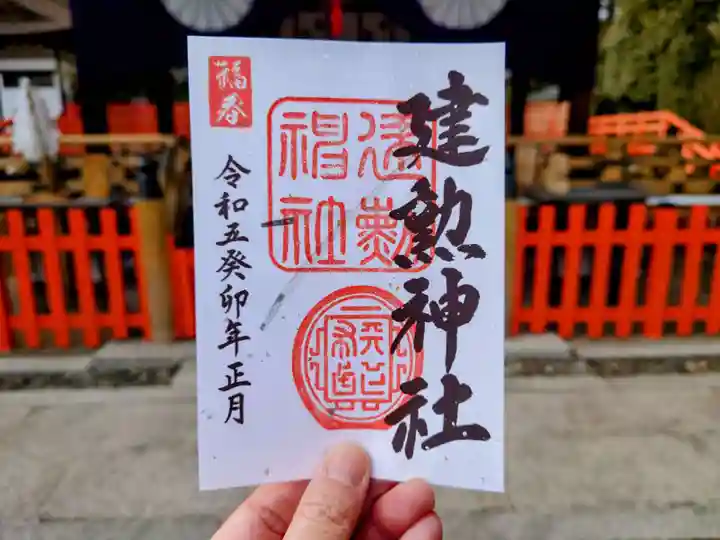 建勲神社
建勲
神社
福春
令和五癸卯年正月